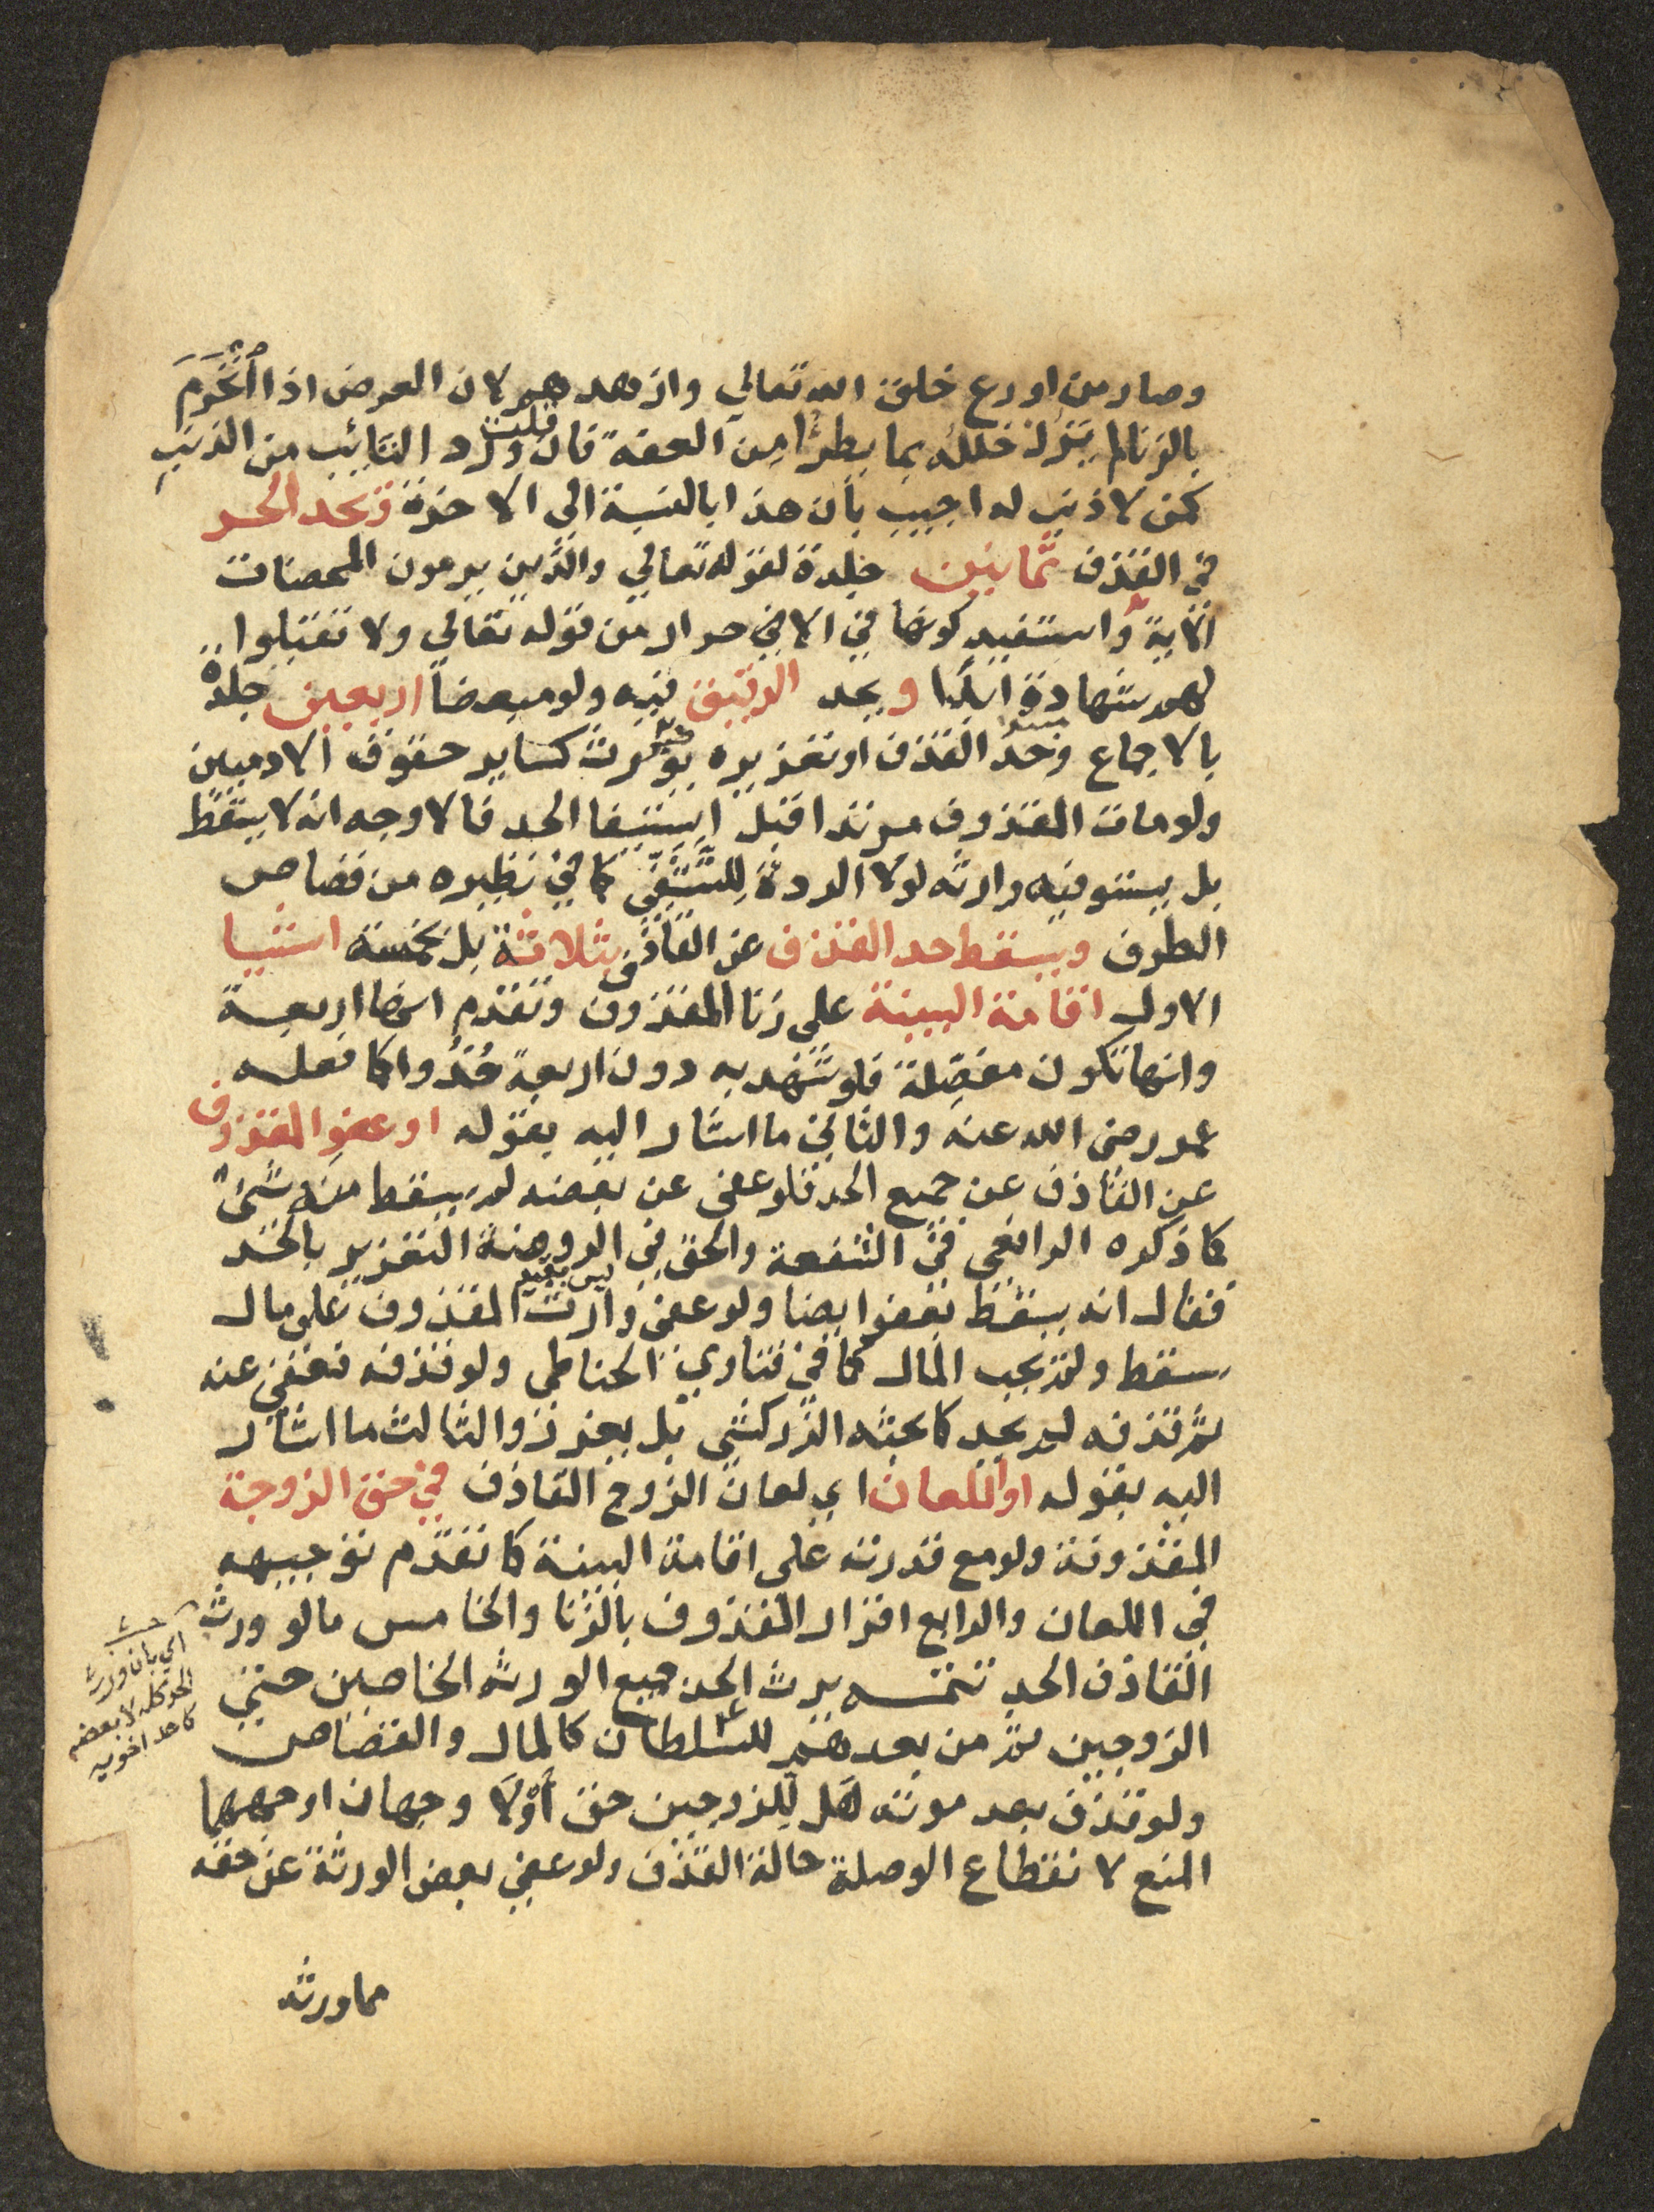 وصار من اورع خلق الله تعالي وازهدهم لان العرض اذا انخرم
بالزنا لم يزل خلله بما يطرأ من العفة فان قلت ورد التائب من الذنب
كمن لا ذنب له اجيب بأن هذا بالنسبة الى الاخرة ويحد الحر
في القذف ثمانين جلدة لقوله تعالي والذين يرمون المحصنات
الاية واستفيد كونها في الاحرار من قوله تعالى ولا تقبلوا
لهم شهادة ابدًا ويحد الرقيق فيه ولو مبعضاً اربعين جلدة
بالاجماع وحد القذف او تعزيره يورث كساير حقوق الادميين
ولو مات المقذوف مرتدا قبل استيفا الحد فالاوجه انه لا يسقط
بل يستوفيه وارثه لولا الردة للتشفي كما في نظيره من قصاص
الطرف ويسقط حد القذف عن القاذف بثلاثة بل بخمسة اشيا
الاول اقامة البينة على زنا المقذوف وتقدم انها اربعة
وانها تكون مفصلة فلو شهد به دون اربعة حُدُّوا كما فعله
عمر رضى الله عنه والثاني ما اشار اليه بقوله او عفو المقذوف
عن القاذف عن جميع الحد فلو عفى عن بعضه لم يسقط منه شئ
كما ذكره الرافعي في الشفعة والحق في الروضة التعزير بالحد
فقال انه يسقط بعفو ايضا ولو عفى وارث المقذوف على مال
سقط ولم يجب المال كما في فتاوي الحناطي ولو قذفه فعفى عنه
ثم قذفه لم يحد كما بحثه الزركشي بل يعزر والثالث ما اشار
اليه بقوله او اللعان اي لعان الزوج القاذف في حق الزوجة
المقذوفة ولو مع قدرته على اقامة البينة كما تقدم توجيهه
في اللعان والرابع اقرار المقذوف بالزنا والخامس ما لو ورث
القاذف الحد تتمه يرث الحد جميع الورثه الخاصين حتي
الزوجين ثم من بعدهم للسلطان كالمال والقصاص
ولو قذف بعد موته هل للزوجين حق أوْلا وجهان اوجههما
المنع لانقطاع الوصلة حالة القذف ولو عفى بعض الورثة عن حقه
مما ورثه
اي بان ورث
الحد كله لا بعضه
كاحد اخويه